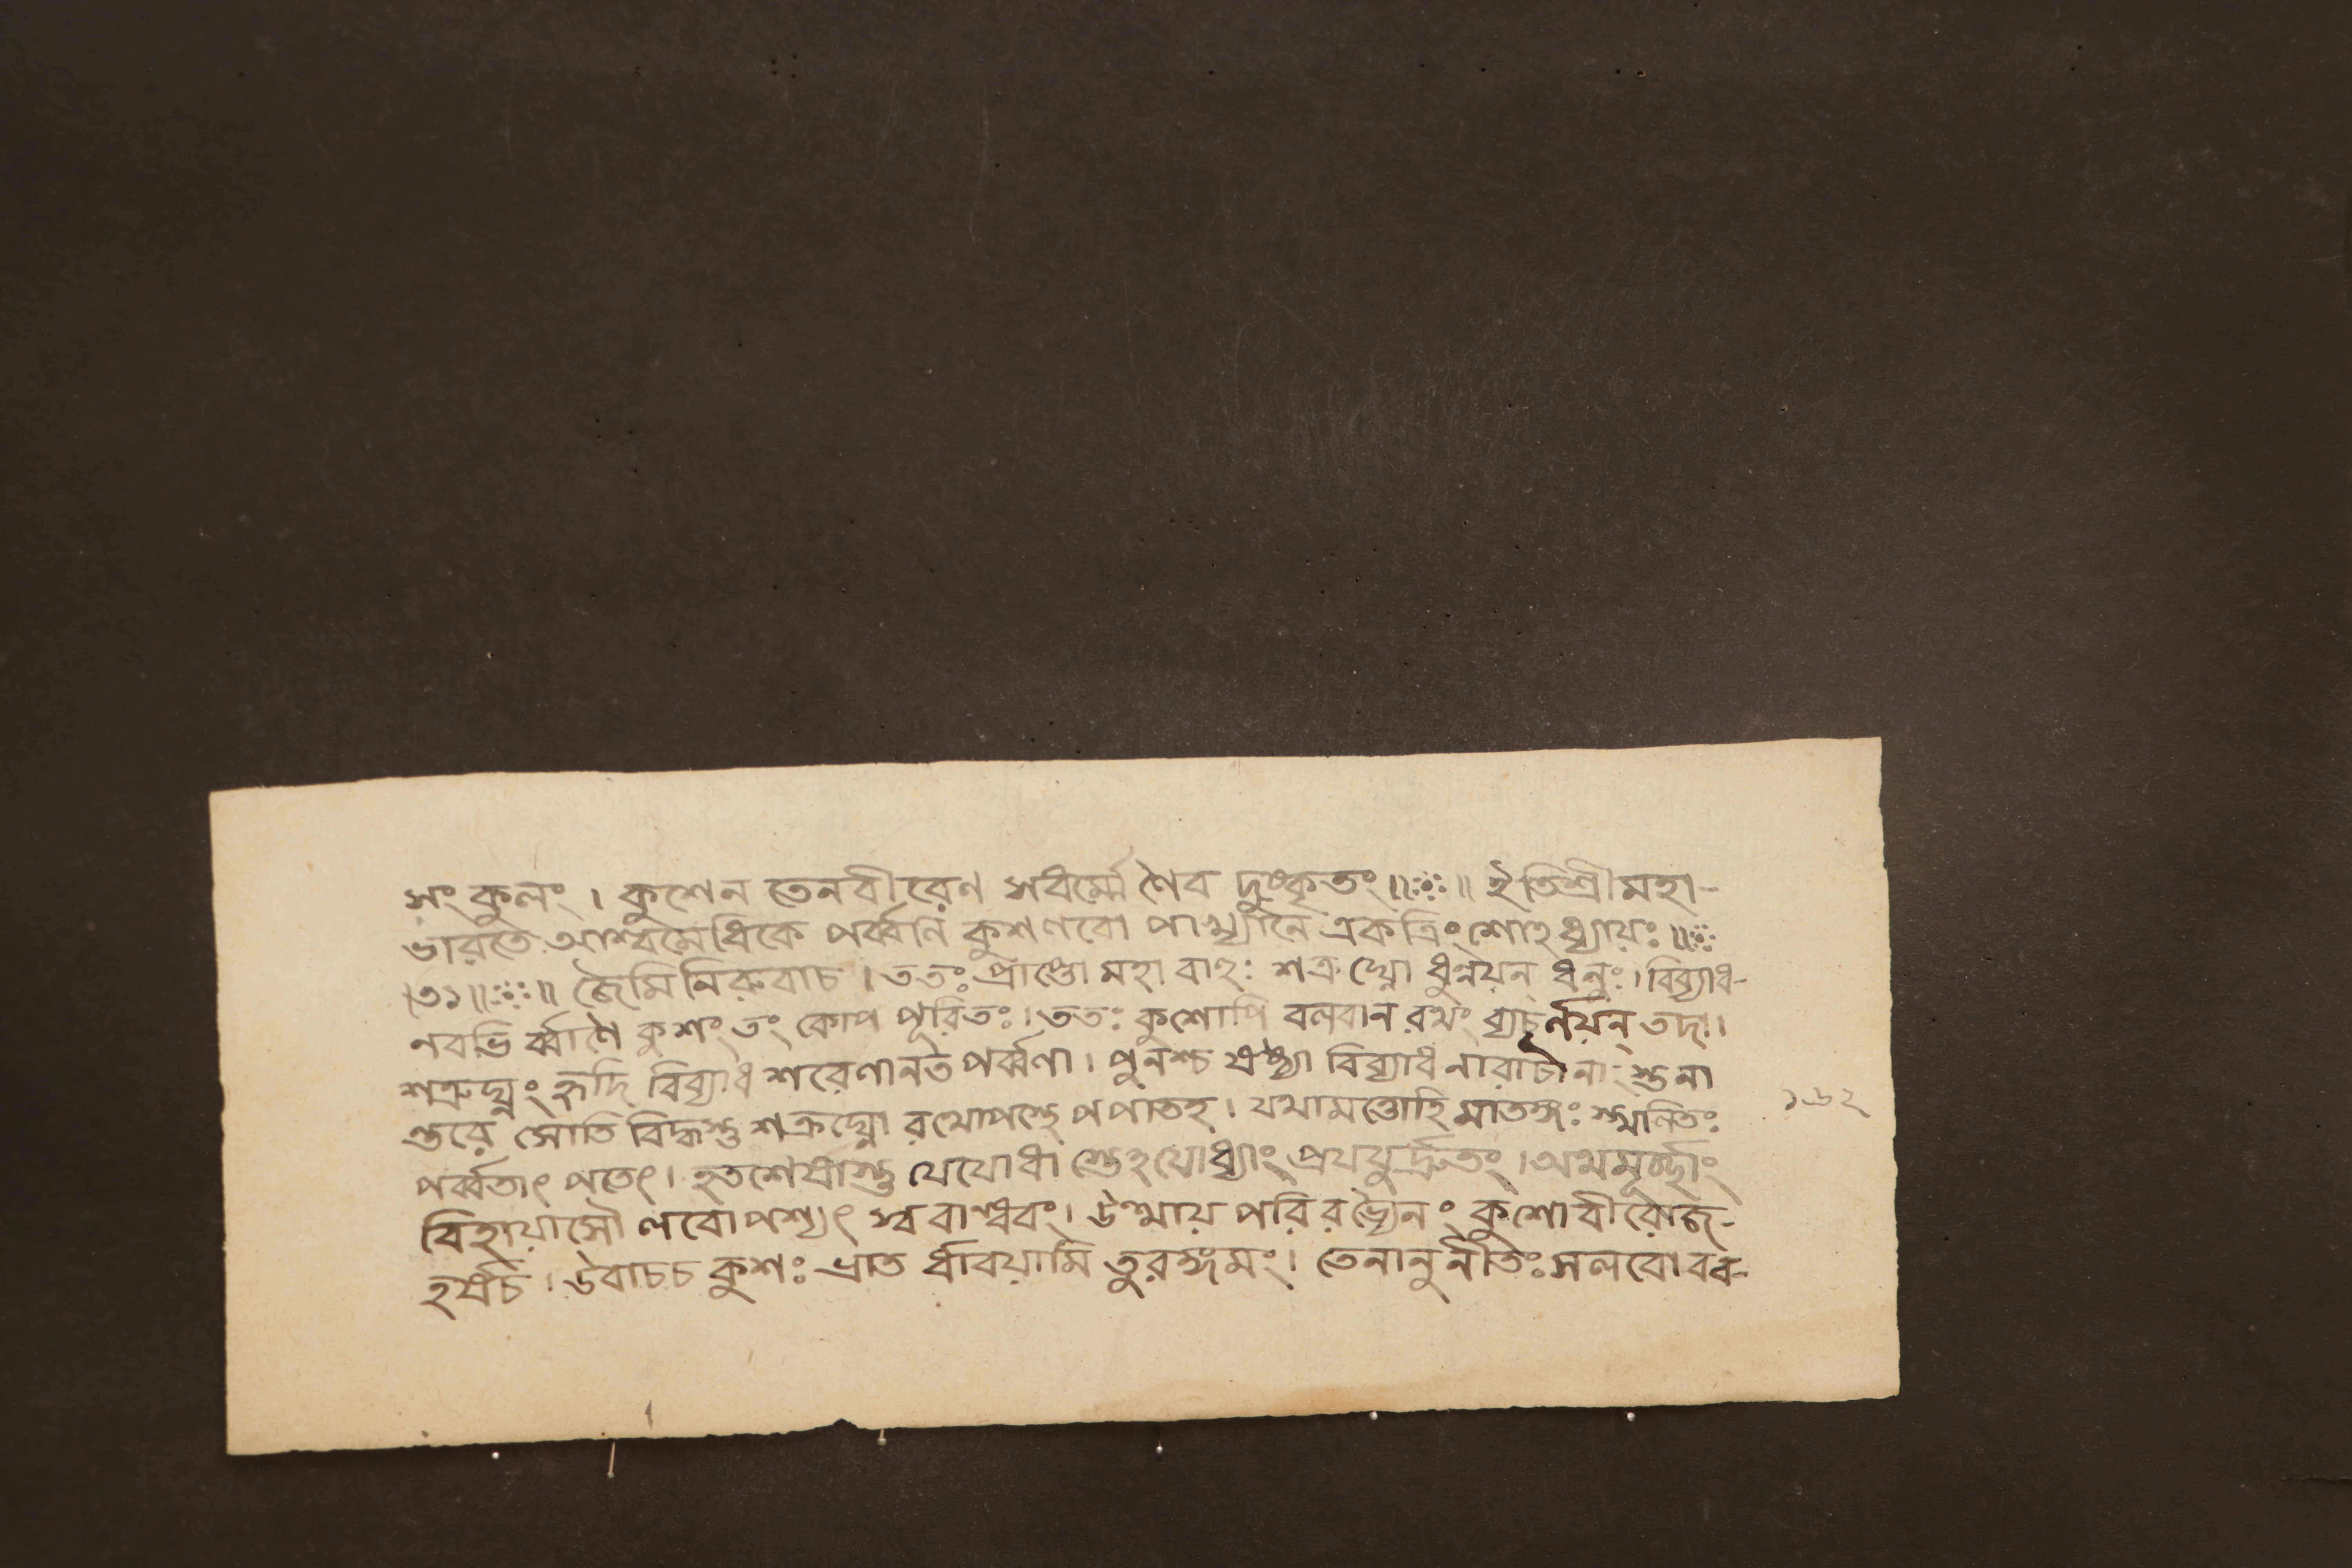 সংকুলং । কুশেন তেনবীরেণ সর্বমেণৈব দুষ্কৃতং ॥ঃ॥ ইতিশ্রীমহা-
ভারতে আশ্বমেধিকে পর্ব্বনি কুশলবো পাখ্যানে একত্রিংশোঽধ্যায়ঃ ॥
।৩১॥ জৈমিনিরুবাচ । ততঃ প্রাপ্তো মহাবাহুঃ শত্রুঘ্নো ধুন্বয়ন্ ধনুঃ । বিব্যাধ-
নবভি র্ব্বাণৈ কুশং তং কোপ পূরিতঃ । ততঃ কুশোপি বলবান রথং ব্যচূর্ণয়ন্ তদা ।
শত্রুঘ্নং হৃদি বিব্যাধ শরেণানত পর্ব্বণা । পুনশ্চ ষষ্ঠ্যা বিব্যাধ নারাচানাং স্তনা
ন্তরে সোতি বিদ্ধস্তু শত্রুঘ্নো রথোপস্থে পপাতহ । যথামত্তোহি মাতঙ্গঃ স্খলিতঃ
১৬২
পর্ব্বতাৎ পতেৎ । হতশেষাস্তু যেযোধা স্তেঽযোধ্যাং প্রযযুর্দ্রুতং । অথমূর্চ্ছাং
বিহায়াসৌ লবোপশ্যৎ স্ববান্ধবং । উত্থায় পরিরভ্যৈনং কুশো বীরোজ-
হর্ষচ । উবাচচ কুশঃ ভ্রাত র্ধাবয়ামি তুরঙ্গমং । তেনানুনীতঃ সলবো বব-